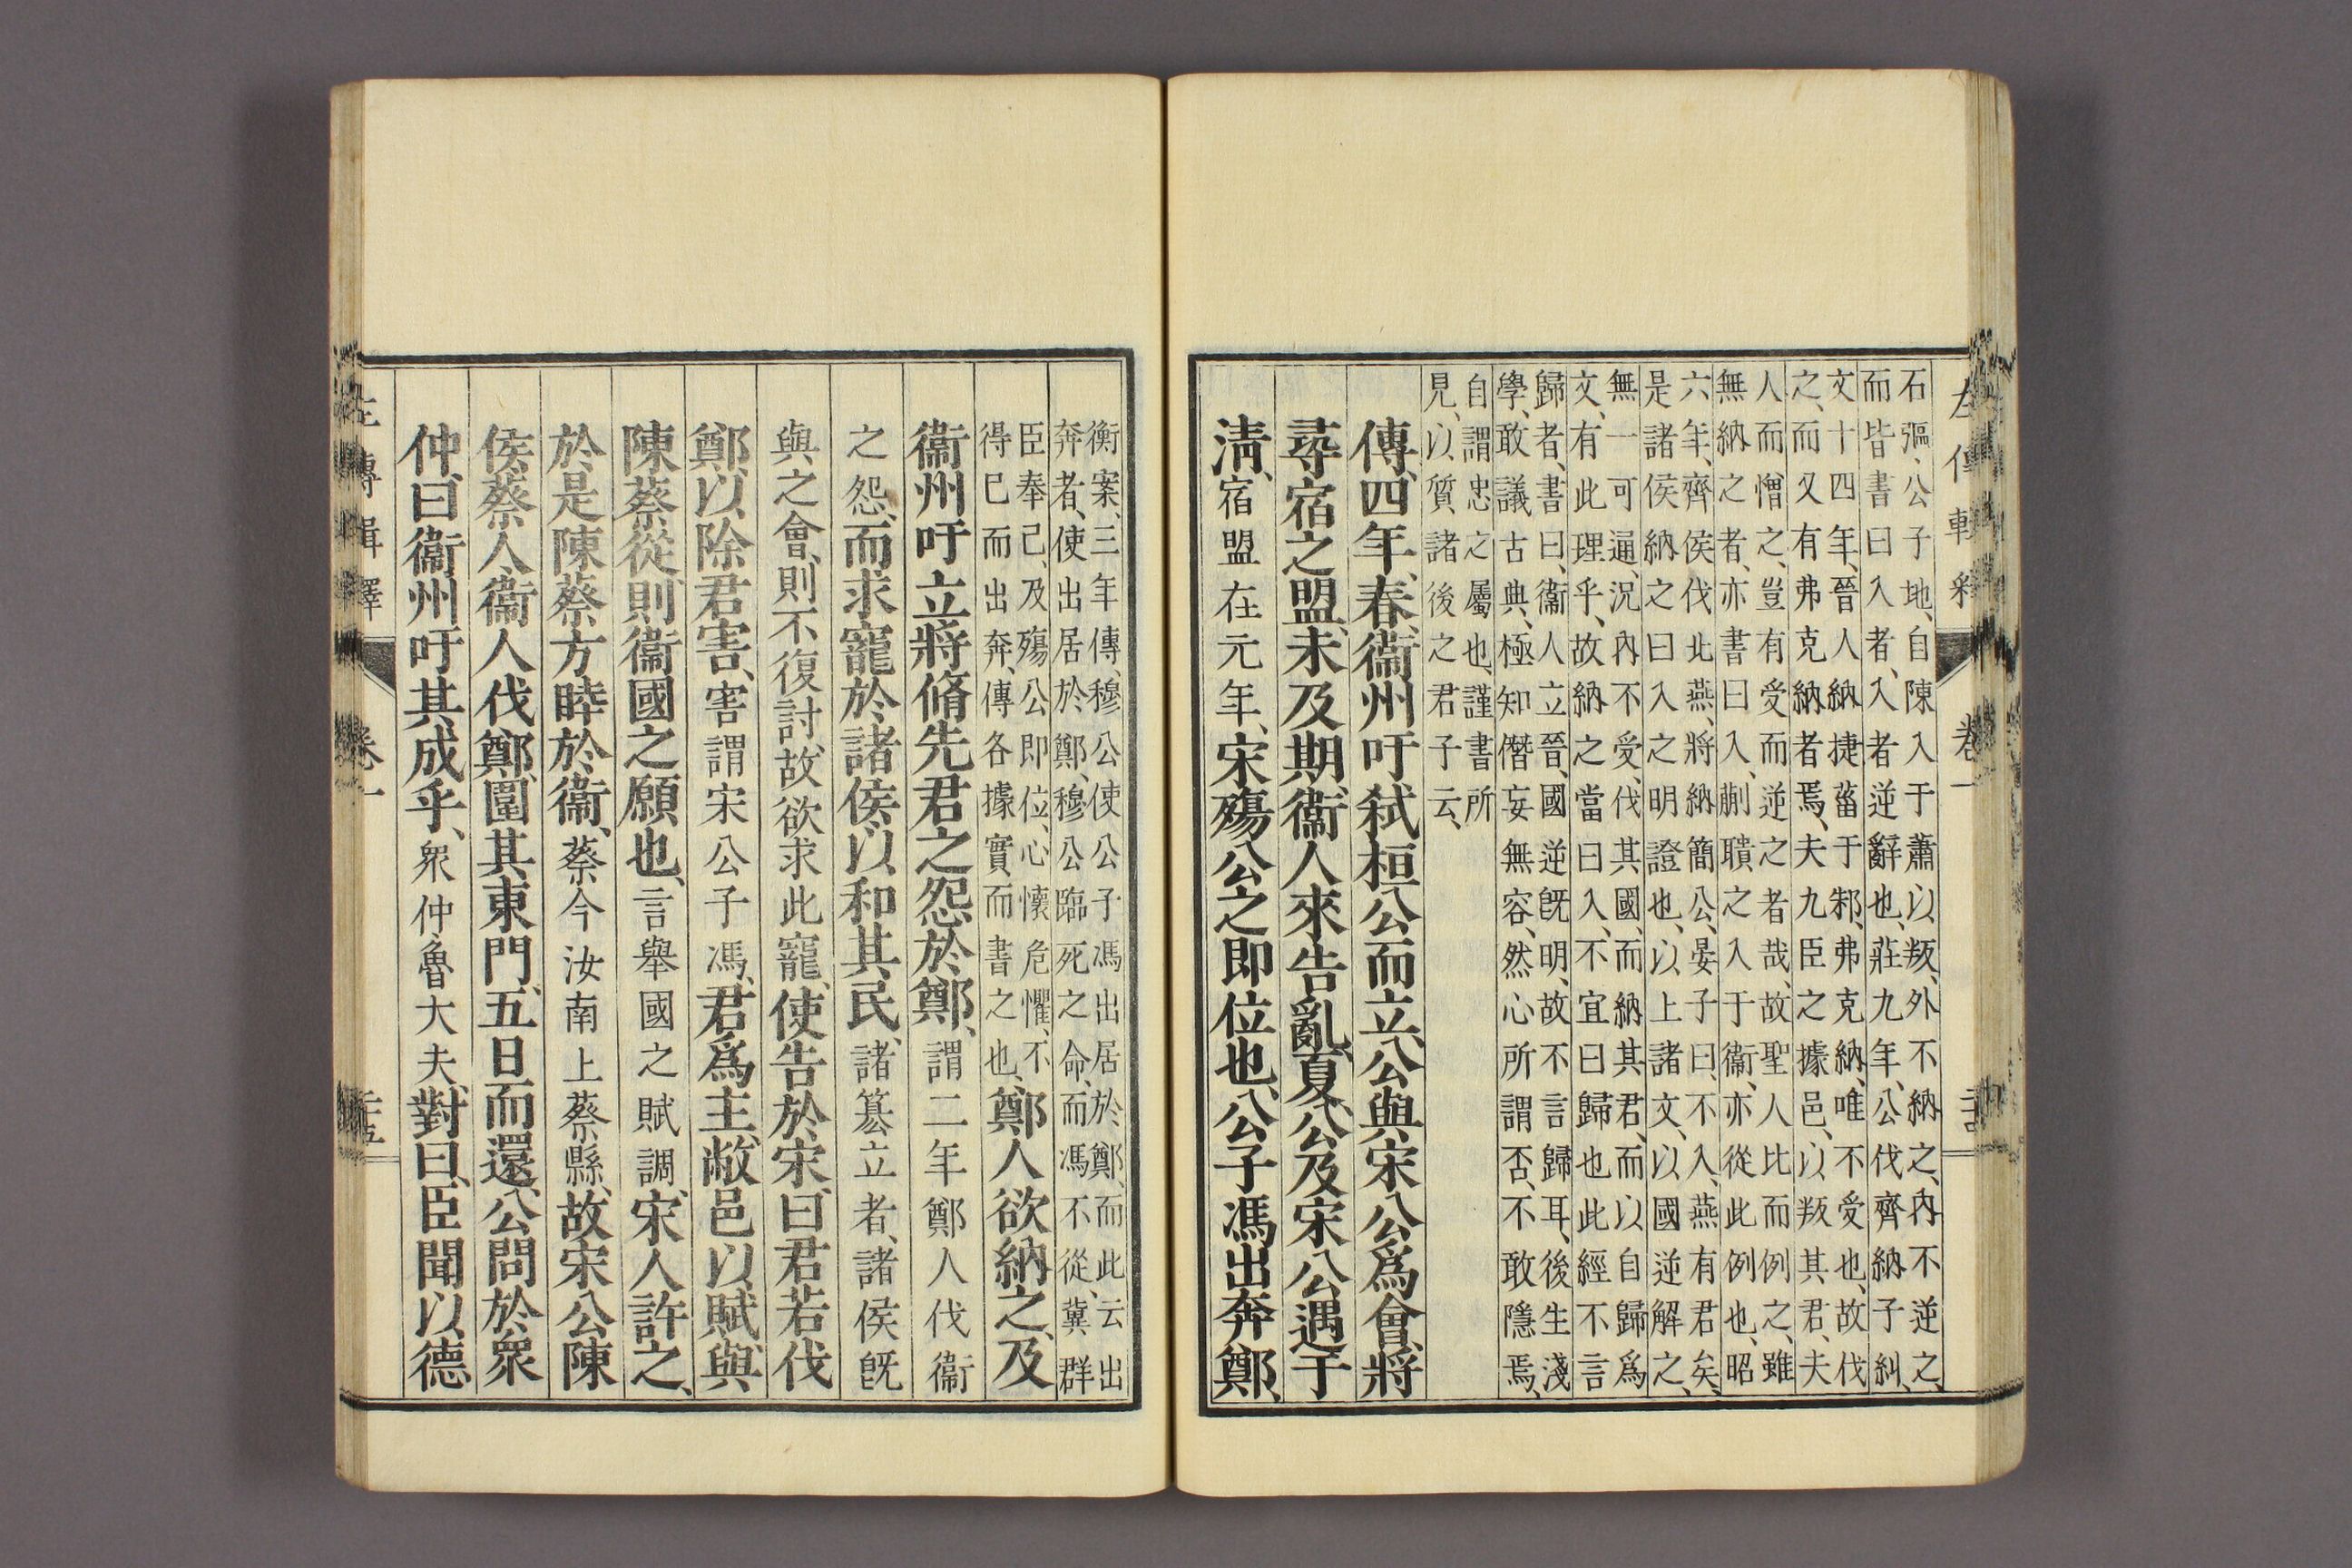 左傳輯釋 卷一
石彄、公子地、自陳入于蕭以叛、外不納之、內不逆之、
而皆書曰入者、入者逆辭也、莊九年、公伐齊納子糾、
文十四年、晉人納捷菑于邾、弗克納、唯不受也、故伐
之、而又有弗克納者焉、夫九臣之據邑、以叛其君、夫
人而憎之、豈有受而逆之者哉、故聖人比而例之、雖
無納之者、亦書曰入、蒯聵之入于衞、亦從此例也、昭
六年、齊侯伐北燕、將納簡公、晏子曰、不入、燕有君矣、
是諸侯納之曰入之明證也、以上諸文、以國逆解之、
無一可通、況內不受、伐其國、而納其君、而以自歸爲
文、有此理乎、故納之當曰入、不宜曰歸也此經不言
歸者、書曰、衞人立晉、國逆旣明、故不言歸耳、後生淺
學、敢議古典、極知僭妄無容、然心所謂否、不敢隱焉、
自謂忠之屬也、謹書所
見、以質諸後之君子云、
傳、四年、春、衞州吁弑桓公而立、公與宋公爲會、將
尋宿之盟、未及期、衞人來告亂、夏、公及宋公遇于
淸、宿盟在元年、宋殤公之即位也、公子馮出奔鄭、
衡案、三年傳、穆公使公子馮出居於鄭、而此云出
奔者、使出居於鄭、穆公臨死之命、而馮不從、冀群
臣奉己、及殤公即位、心懷危懼、不
得已而出奔、傳各據實而書之也、鄭人欲納之、及
衞州吁立、將脩先君之怨於鄭、謂二年鄭人伐衞
之怨、而求寵於諸侯、以和其民、諸簒立者、諸侯旣
與之會、則不復討、故欲求此寵、使告於宋、曰、君若伐
鄭、以除君害、害謂宋公子馮、君爲主、敝邑以賦與
陳蔡從、則衞國之願也、言舉國之賦調、宋人許之、
於是陳蔡方睦於衞、蔡今汝南上蔡縣、故宋公陳
侯、蔡人、衞人伐鄭、圍其東門、五日而還、公問於衆
仲、曰、衞州吁其成乎、衆仲、魯大夫、對曰、臣聞以德
左傳輯釋 卷一 二十五